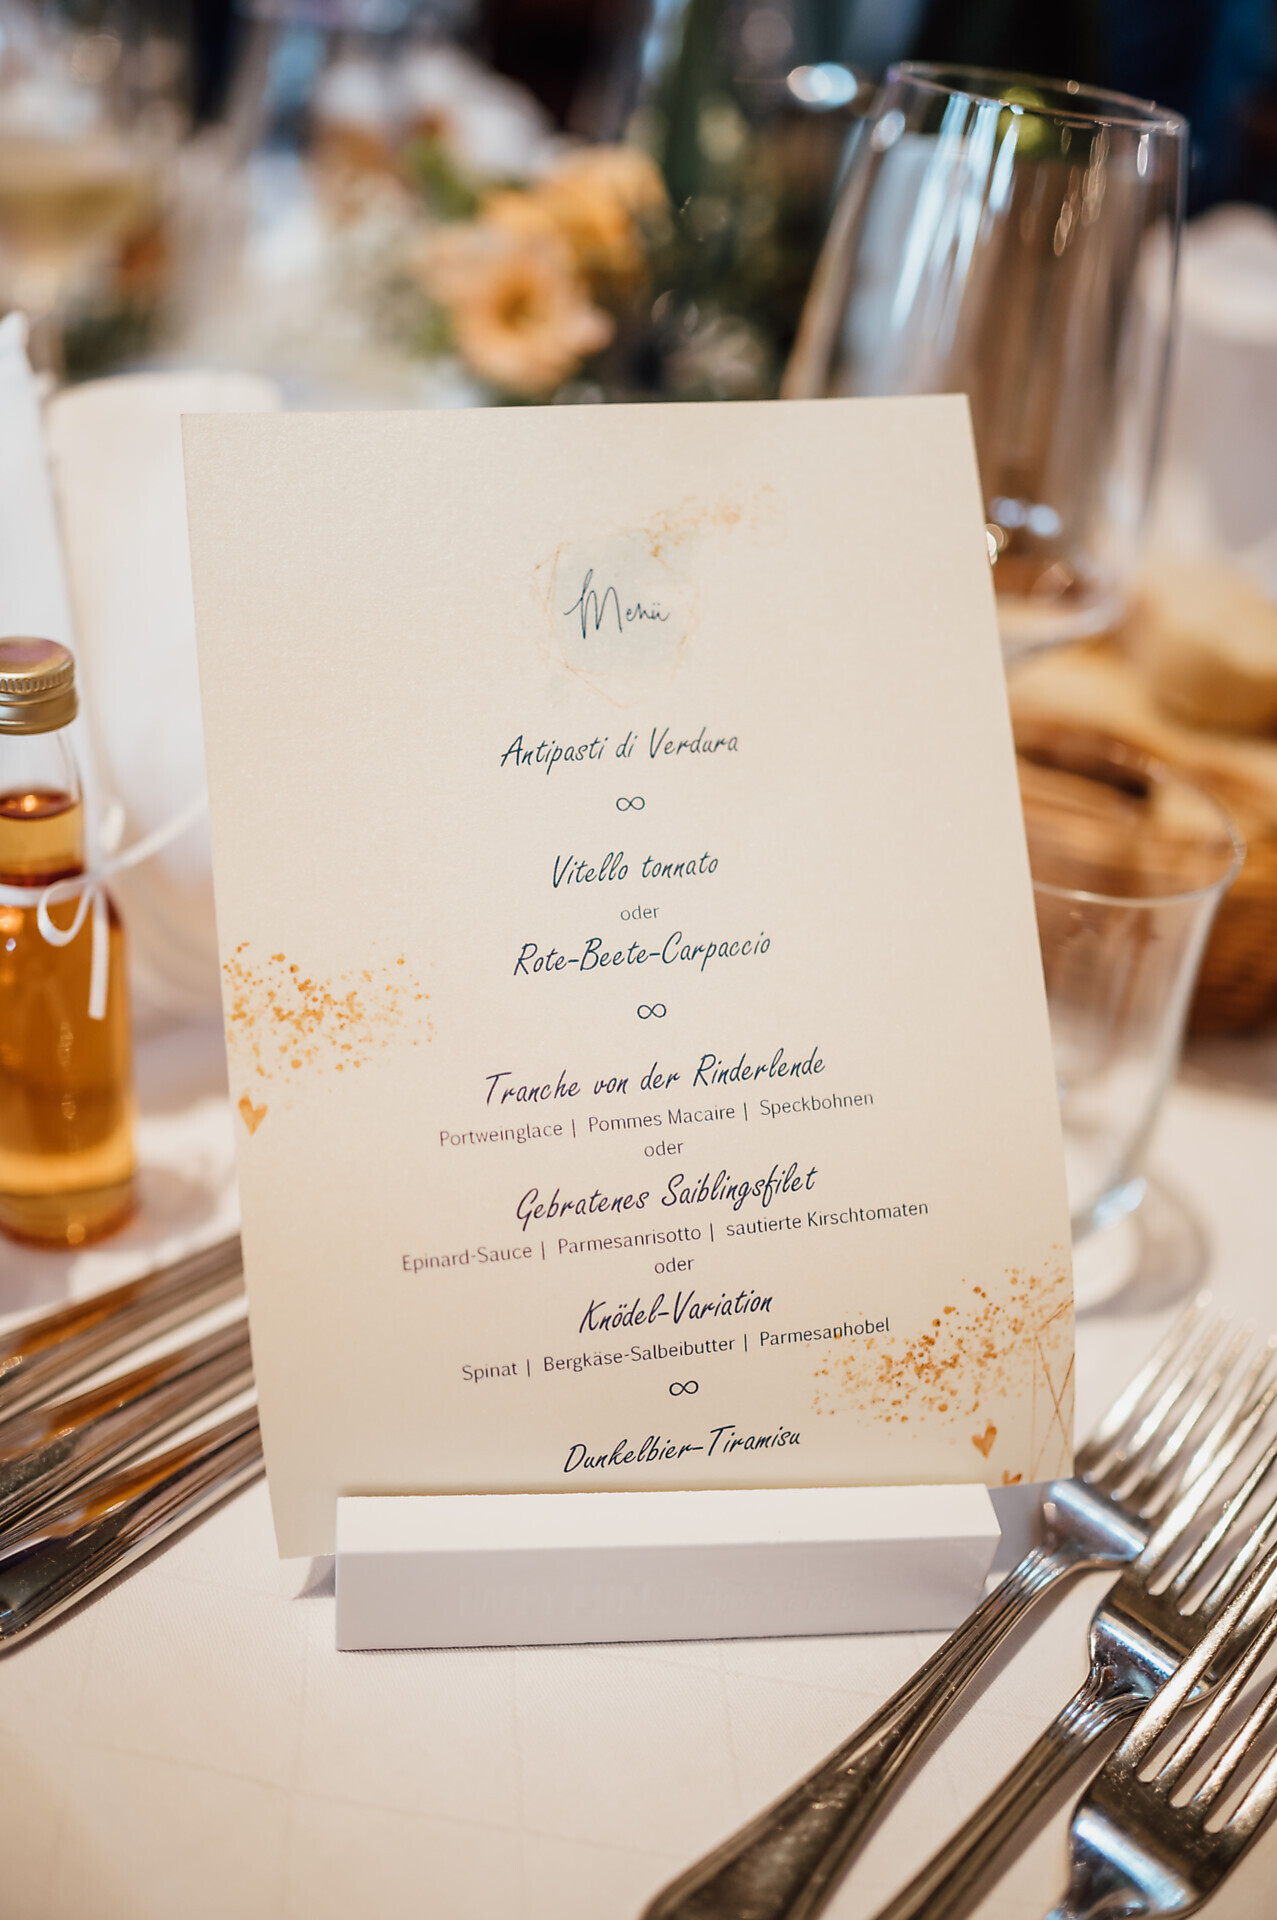 Menü
Antipasti di Verdura
∞
Vitello tonnato
oder
Rote-Beete-Carpaccio
∞
Tranche von der Rinderlende
Portweinglace | Pommes Macaire | Speckbohnen
oder
Gebratenes Saiblingsfilet
Epinard-Sauce | Parmesanrisotto | sautierte Kirschtomaten
oder
Knödel-Variation
Spinat | Bergkäse-Salbeibutter | Parmesanhobel
∞
Dunkelbier-Tiramisu